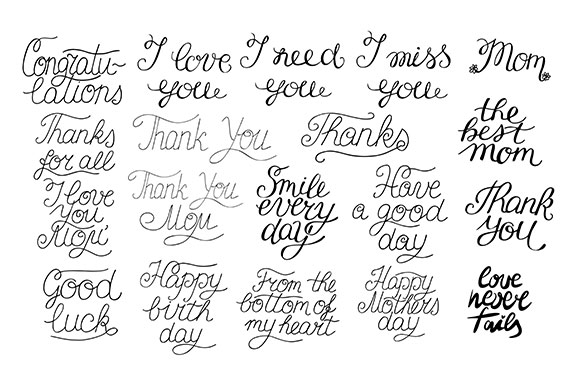 Congratu-
lations
I love
you
I need
you
I miss
you
Mom
the
best
mom
Thanks
for all
Thank You
Thanks
I love
You
Mom!
Thank You
Mom
Smile
every
day
Have
a good
day
Thank
you
Good
luck
Happy
birth
day
From the
bottom of
my heart
Happy
Mothers
day
love
never
fails